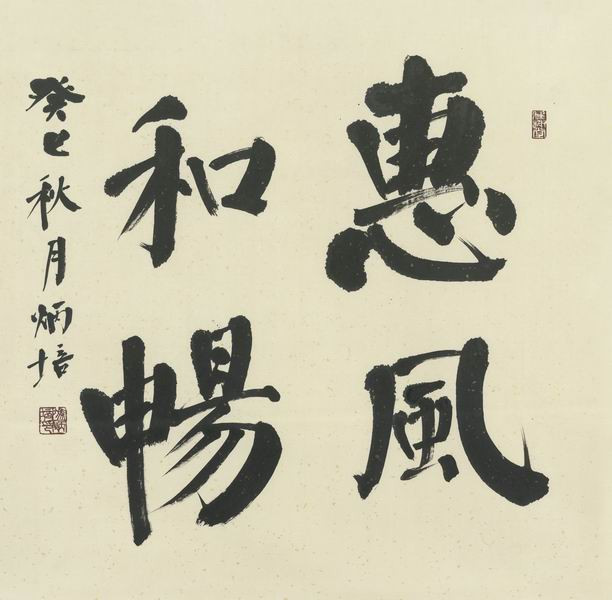 惠風
和暢
癸巳秋月炳培